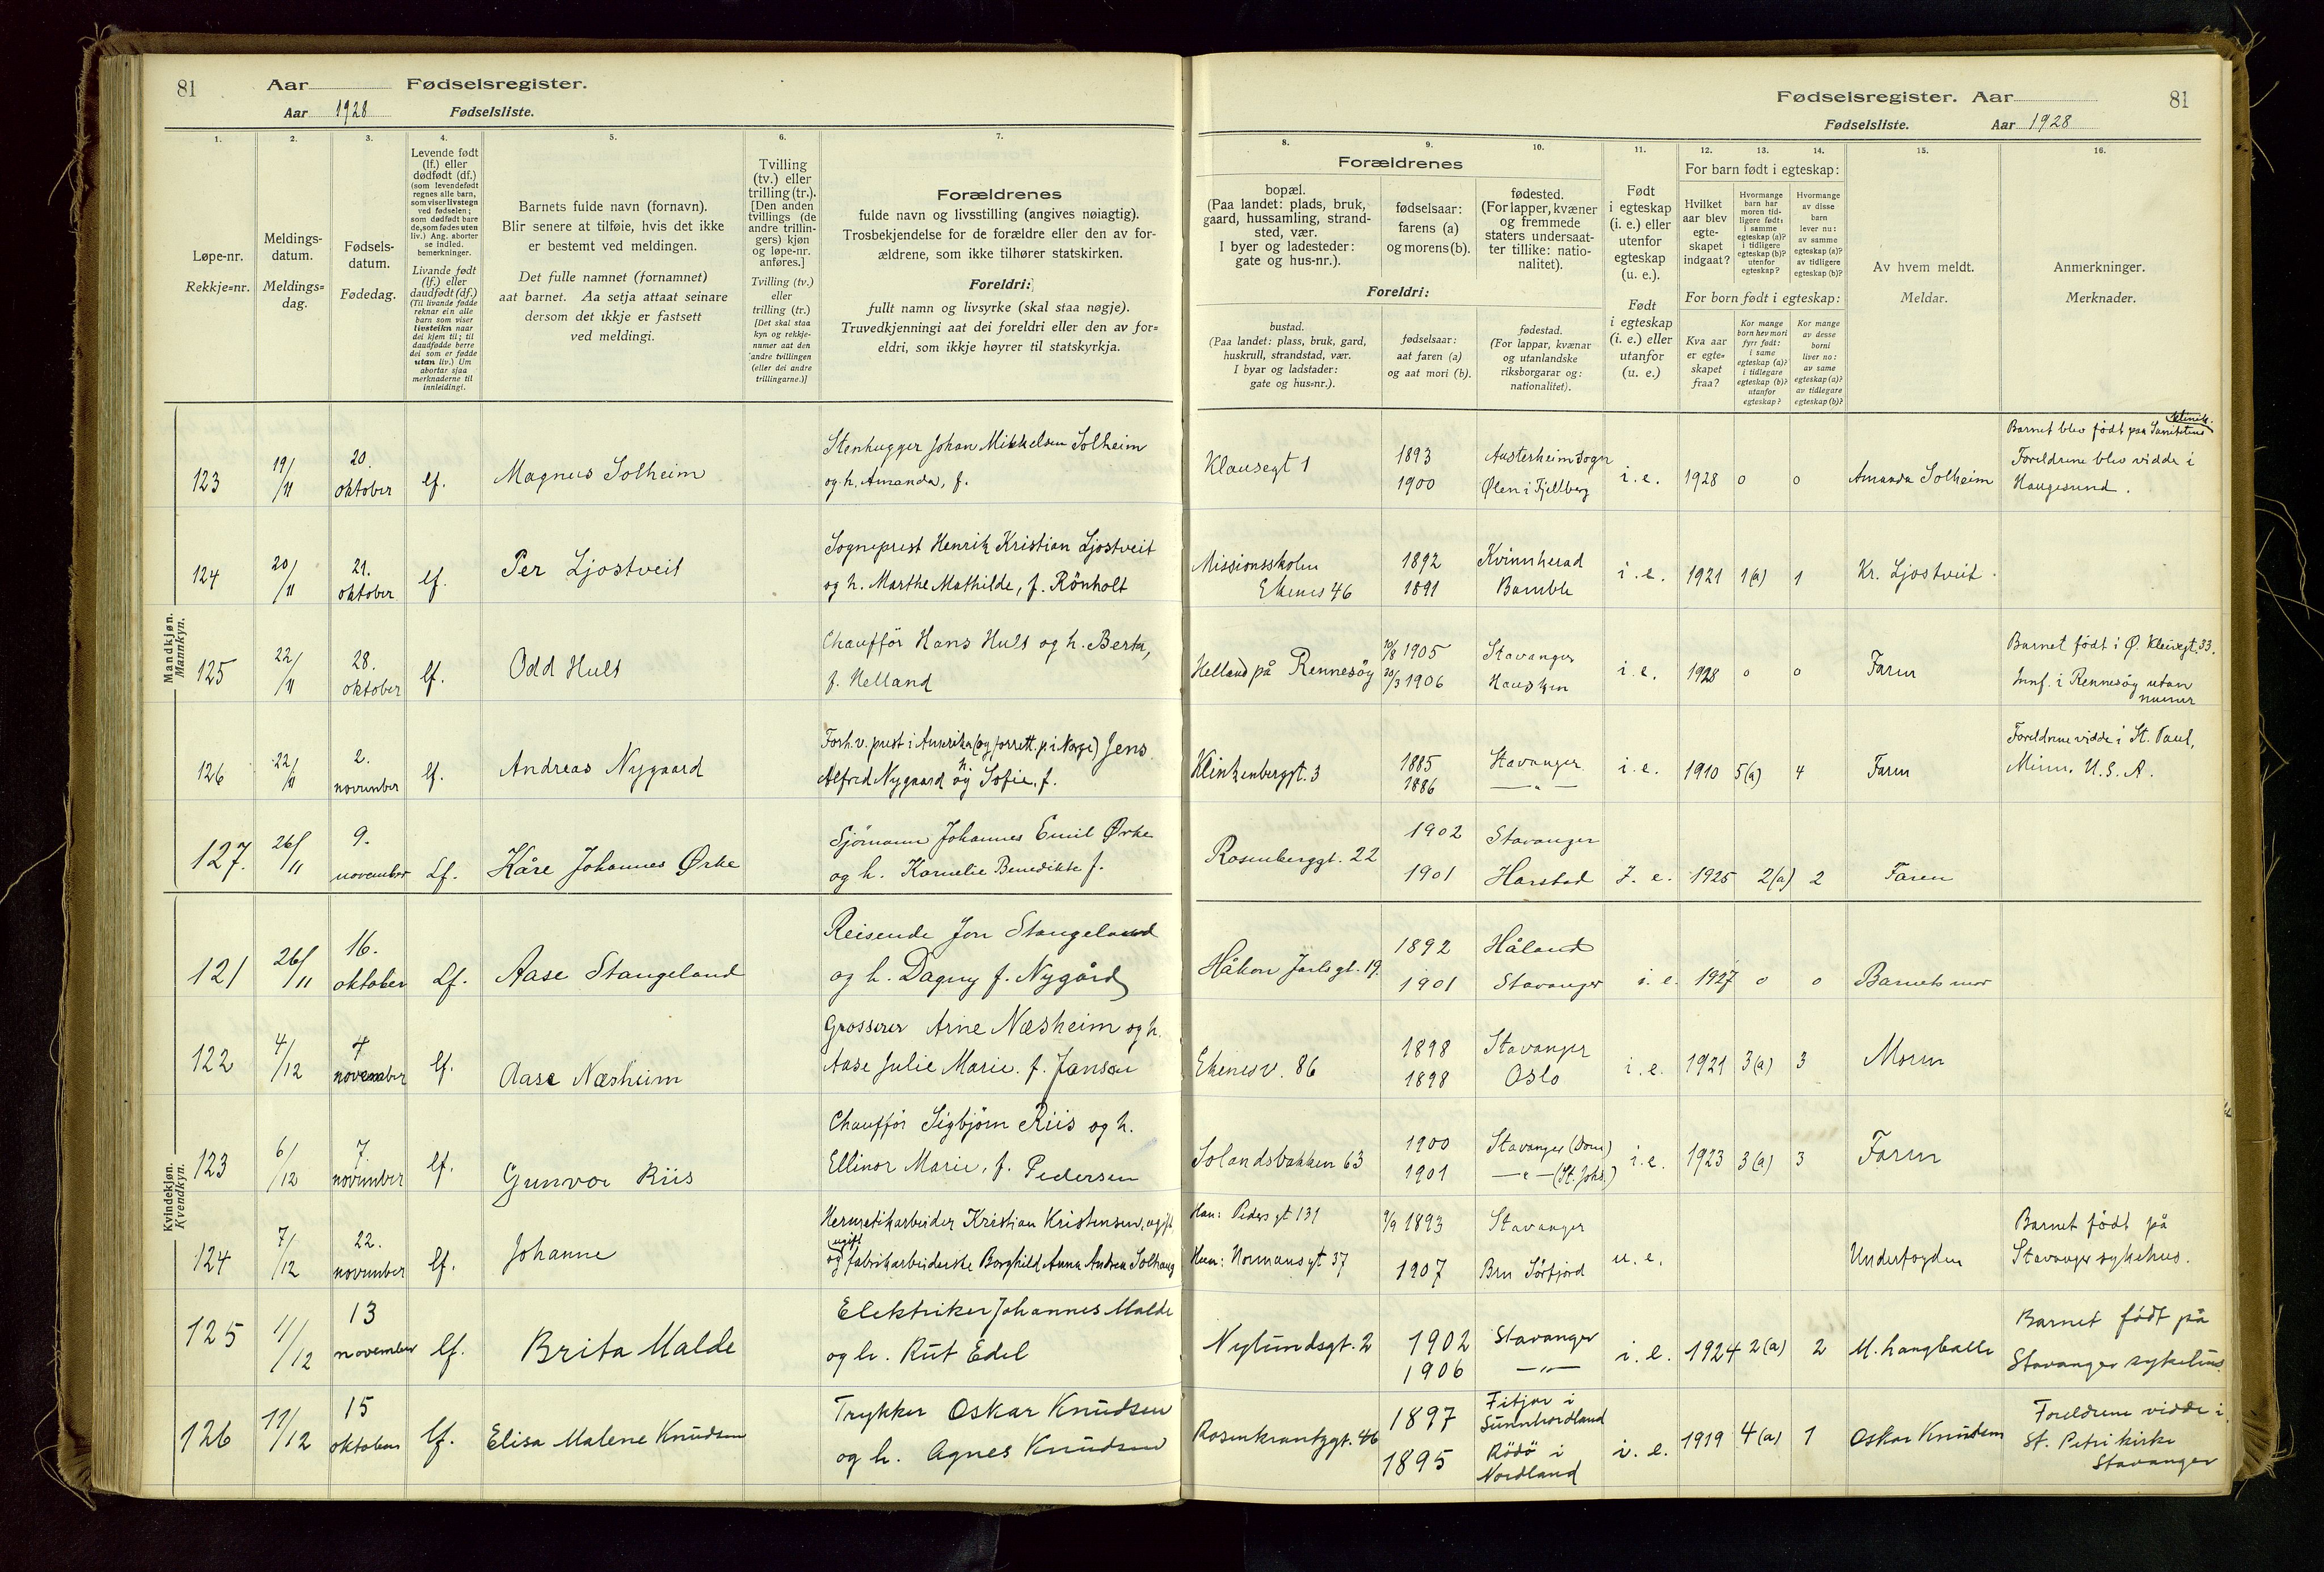 81 Aar Fødselsregister.
Aar 1928 Fødselsliste.
1. 2. 3. 4. 5. 6. 7.
Løpe-nr.
Rekkje=nr.
Meldings-
datum.
Meldings=
dag.
Fødsels-
datum.
Fødedag.
Levende født
(lf.) eller
dødfødt (df.)
(som levendefødt
regnes alle barn,
som viser livstegn
ved fødselen;
som dødfødt bare
de, som fødes uten
liv.) Ang. aborter
se indled.
bemerkninger.
Livande født
(lf.) eller
daudfødt (df.)
(Til livande fødde
reknar ein alle
barn som viser
livsteikn naar
dei kjem til; til
daudfødde berre
dei som er fødde
utan liv.) Um
abortar sjaa
merknaderne til
innleidingi.
Barnets fulde navn (fornavn).
Blir senere at tilføie, hvis det ikke
er bestemt ved meldingen.
Det fulle namnet (fornamnet)
aat barnet. Aa setja attaat seinare
dersom det ikkje er fastsett
ved meldingi.
Tvilling
(tv.) eller
trilling (tr.).
[Den anden
tvillings (de
andre trillin-
gers) kjøn
og løpe-nr.
anføres.]
Tvilling (tv.)
eller
trilling (tr.)
[Det skal staa
kyn og rekkje-
numer aat den
andre tvillingen
(eller dei andre
trillingarne.)]
Forældrenes
fulde navn og livsstilling (angives nøiagtig).
Trosbekjendelse for de forældre eller den av for-
ældrene, som ikke tilhører statskirken.
Foreldri:
fullt namn og livsyrke (skal staa nøgje).
Truvedkjenningi aat dei foreldri eller den av for=
eldri, som ikkje høyrer til statskyrkja.
Fødselsregister. Aar 81
Fødselsliste. Aar 1928
8. 9. 10. 11. 12. 13. 14. 15. 16.
Forældrenes
bopæl.
(Paa landet: plads, bruk,
gaard, hussamling, strand-
sted, vær.
I byer og ladesteder:
gate og hus-nr.).
fødselsaar:
farens (a)
og morens (b).
fødested.
(For lapper, kvæner
og fremmede
staters undersaat-
ter tillike: natio-
nalitet).
Foreldri:
bustad.
(Paa landet: plass, bruk, gard,
huskrull, strandstad, vær.
I byar og ladstader:
gate og hus=nr.).
fødselsaar:
aat faren (a)
og aat mori (b).
fødestad.
(For lappar, kvænar
og utanlandske
riksborgarar og:
nationalitet).
Født
i egteskap
(i. e.) eller
utenfor
egteskap
(u. e.).
Født
i egteskap
(i. e.) eller
utanfor
(u. e.)
For barn født i egteskap:
Hvilket
aar blev
egte-
skapet
indgaat?
Hvormange
barn har
moren tid-
ligere født:
i samme
egteskap (a)?
i tidligere
egteskap (b)?
utenfor
egteskap?
Hvormange
av disse
barn
lever nu:
av samme
egteskap (a)?
av tidligere
egteskap (b)?
For born født i egteskap:
Kva aar
er egte=
skapet
fraa?
Kor mange
born hev mori
fyrr født:
i same
egteskap (a)?
i tidlegare
egteskap (b)?
utanfor
egteskap?
Kor mange
av desse
borni
liver no:
av same
egteskap (a)?
av tidlegare
egteskap (b)?
Av hvem meldt.
Meldar.
Anmerkninger.
Merknader.
Mandkjøn.
Mannkyn.
123 19/11 20. oktober lf. Magnus Solheim
Stenhugger Johan Mikkelsen Solheim
og h. Amanda, f.
Klausegt 1 1893 Austerheim sogn
1900 Ølen i Fjellberg i. e. 1928 0 0 Amanda Solheim
Barnet blev født paa Sanitetens klinikk.
Foreldrene blev vidde i
Haugesund.
124 20/11 21. oktober lf. Per Ljostveit
Sogneprest Henrik Kristian Ljostveit
og h. Marthe Mathilde, f. Rönholt
Missionsskolen 1892 Kvinnherad
Ekenes 46 1891 Bamble i. e. 1921 1(a) 1 Kr. Ljostveit.
125 22/11 28. oktober lf. Odd Hult
Chaufför Hans Hult og h. Berta,
f. Helland
Helland på Rennesöy 1905 Stavanger
20/3 1906 Hausken i. e. 1928 0 0 Faren
Barnet født i Ø. Kleivegt. 33.
Innf. i Rennesöy utan
numer
126 22/11 2. november lf. Andreas Nygaard
Forh. v. prest i Amerika (og forrett. p. i Norge) Jens
Alfred Nygaard og h. Sofie, f.
Klinkenberggt. 3 1885 Stavanger
1886 — " — i. e. 1910 5(a) 4 Faren
Foreldrene vidde i St. Paul,
Minn. U. S. A.
127. 26/11 9. november Lf. Kåre Johannes Ørke
Sjömann Johannes Emil Ørke
og h. Kornelie Benedikte f.
Rosenberggt. 22 1902 Stavanger
1901 Harstad I. e. 1925 2(a) 2 Faren
Kvindekjøn.
Kvendkyn.
121 26/11 16. oktober Lf. Aase Stangeland
Reisende Jon Stangeland
og h. Dagny f. Nygård
Håkon Jarlsgt. 19. 1892 Håland
1901 Stavanger i. e. 1927 0 0 Barnets mor
122 4/12 4 november lf. Aase Næsheim
Grosserer Arne Næsheim og h.
Aase Julie Marie. f. Jansen
Ekenesv. 86 1898 Stavanger
1898 Oslo i. e. 1921 3(a) 3 Moren
123 6/12 7. november lf. Gunvor Riis
Chaufför Sigbjörn Riis og h.
Ellinor Marie, f. Pedersen
Solandsbakken 63 1900 Stavanger (Dom)
1901 — " — (St. Johs.) i. e. 1923 3(a) 3 Faren
124 7/12 22. november lf. Johanne
Hermetikarbeider Kristian Kristensen, ugift
og ugift fabrikarbeiderske Borghild Anna Andrea Solhaug
Han: Peders gt 131 1893 Stavanger
Hun: Normansgt 37 1907 Bru Sörfjord u. e. Underfogden
Barnet födt på
Stavanger sykehus.
125 11/12 13 november lf. Brita Malde
Elektriker Johannes Malde
og h. Rut Edel
Nylundsgt. 2 1902 Stavanger
1906 — " — i. e. 1924 2(a) 2 M. Langballe
Barnet født på
Stavanger sykehus.
126 17/12 15 oktober lf. Elisa Malene Knudsen
Trykker Oskar Knudsen
og h. Agnes Knudsen
Rosenkrantzgt. 46 1897 Fitjar i
Sunnhordland
1895 Rödö i
Nordland i. e. 1919 4(a) 1 Oskar Knudsen
Foreldrene vidde i
St. Petri kirke
Stavanger